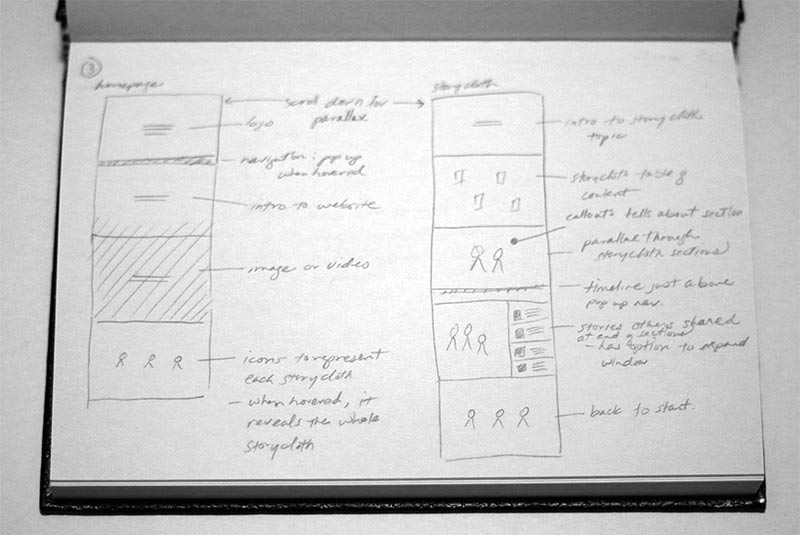 3
homepage
scroll down for
parallax
logo
navigation: pop up
when hovered
intro to website
image or video
icons to represent
each storycloth
- when hovered, it
reveals the whole
storycloth
storycloth
intro to storycloth
topic
storycloth table of
content
callouts tells about section
parallax through
storycloth sections
timeline just above
pop up nav.
stories others shared
at end of sections
- has option to expand
window
back to start.